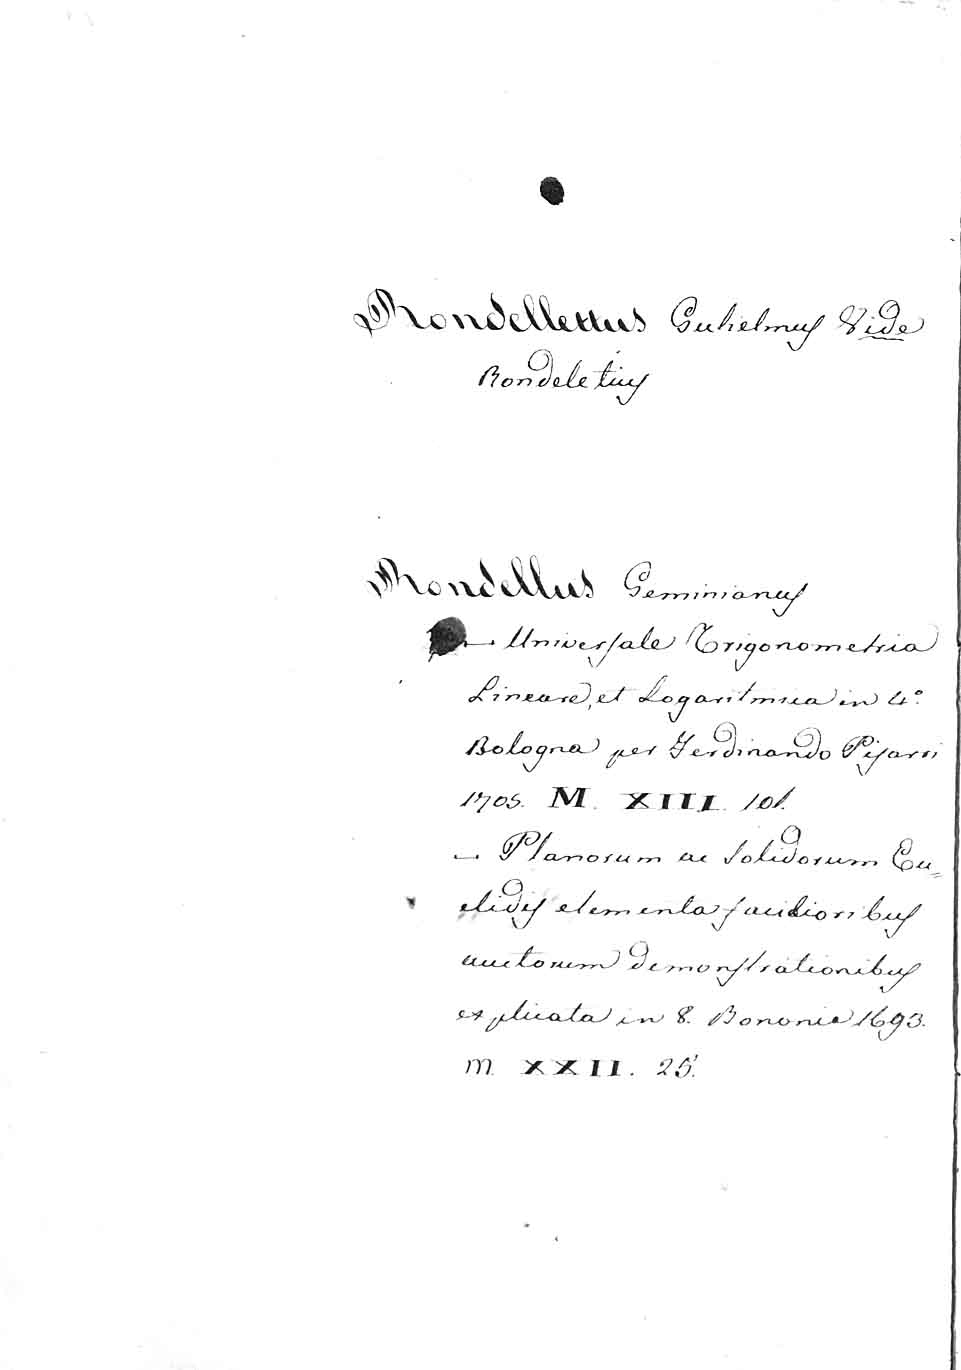 Rondellettus Gulielmus Vide
Rondeletius
Rondellus Geminianus
— Universale Trigonometria
Lineare, et Logaritmica in 4.º
Bologna per Ferdinando Pisarri
1705. M. XIII. 101.
— Planorum ac Solidorum Eu=
clidis elementa facilioribus
auctorum demonstrationibus
explicata in 8. Bononie 1693.
M. XXII. 25.